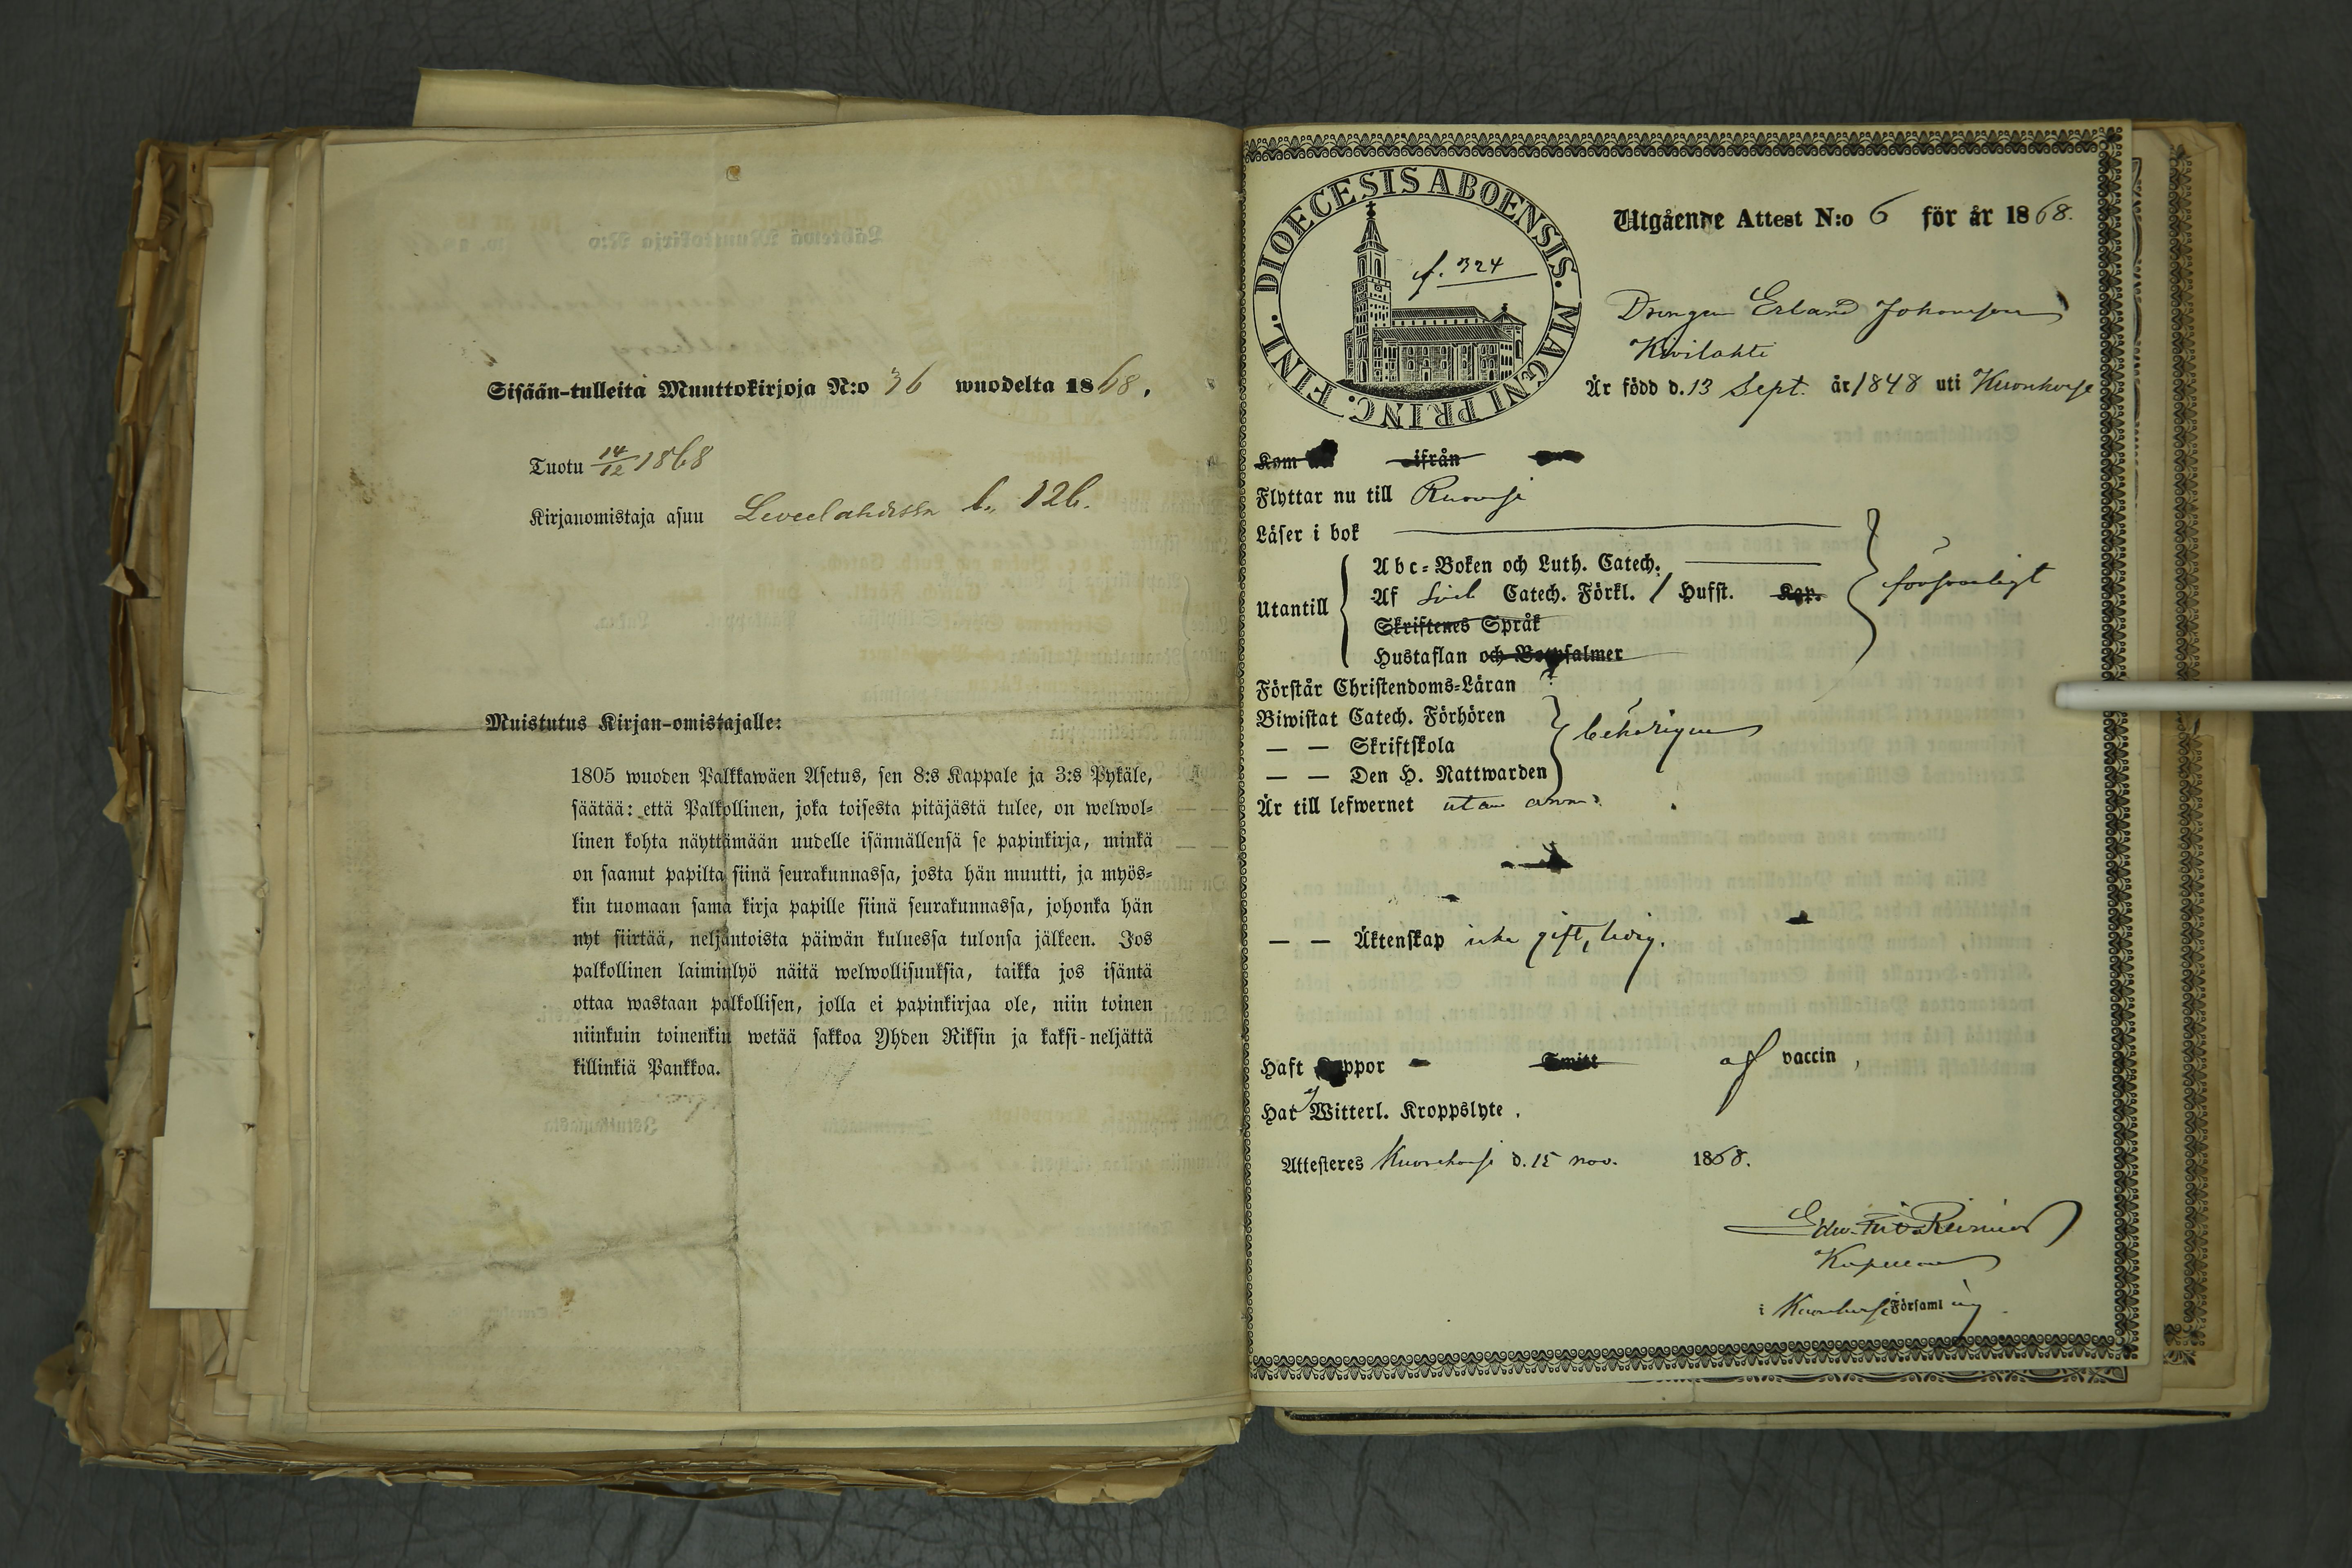 Sisään-tulleita Muuttokirjoja N:o 36 wuodelta 1868.
Tuotu 14/12 1868
Kirjanomistaja asuu Leveelahdessa b. 126.
Muistutus Kirjan-omistajalle:
1805 wuoden Palkkawäen Asetus, sen 8:s Kappale ja 3:s Pykäle,
säätää: että Palkollinen, joka toisesta pitäjästä tulee, on welwol-
linen kohta näyttämään uudelle isännällensä se papinkirja, minkä
on saanut papilta siinä seurakunnassa, josta hän muutti, ja myös-
kin tuomaan sama kirja papille siinä seurakunnassa, johonka hän
nyt siirtää, neljäntoista päiwän kuluessa tulonsa jälkeen. Jos
palkollinen laiminlyö näitä welwollisuuksia, taikka jos isäntä
ottaa wastaan palkollisen, jolla ei papinkirjaa ole, niin toinen
niinkuin toinenkin wetää sakkoa Yhden Riksin ja kaksi-neljättä
killinkiä Pankkoa.
DIOECESIS ABOENSIS. MAGNI PRINC. FINL.
f. 324
Utgående Attest N:o 6 för år 1868.
Drengen Erland Johansson
Kivilahti
Är född d. 13 Sept. år 1848 uti Kuorehvesi
Kom ifrån
Flyttar nu till Ruovesi
Läser i bok
Utantill
Abc-Boken och Luth. Catech.
Af Catech. Förkl. / Husst. Kap.
Skriftenes Språk
Hustaflan och Botpsalmer
försvarligt
Förstår Christendoms-Läran
Biwistat Catech. Förhören
— — Skriftskola
— — Den H. Nattwarden
behörigen
Är till lefwernet utan anm.
— — Äktenskap icke gift, ledig.
Haft Koppor Smitt af vaccin,
Har ej Witterl. Kroppslyte.
Attesteres Kuorehvesi d. 15 nov. 1868.
Kapellan
i Kuorehvesi Församling